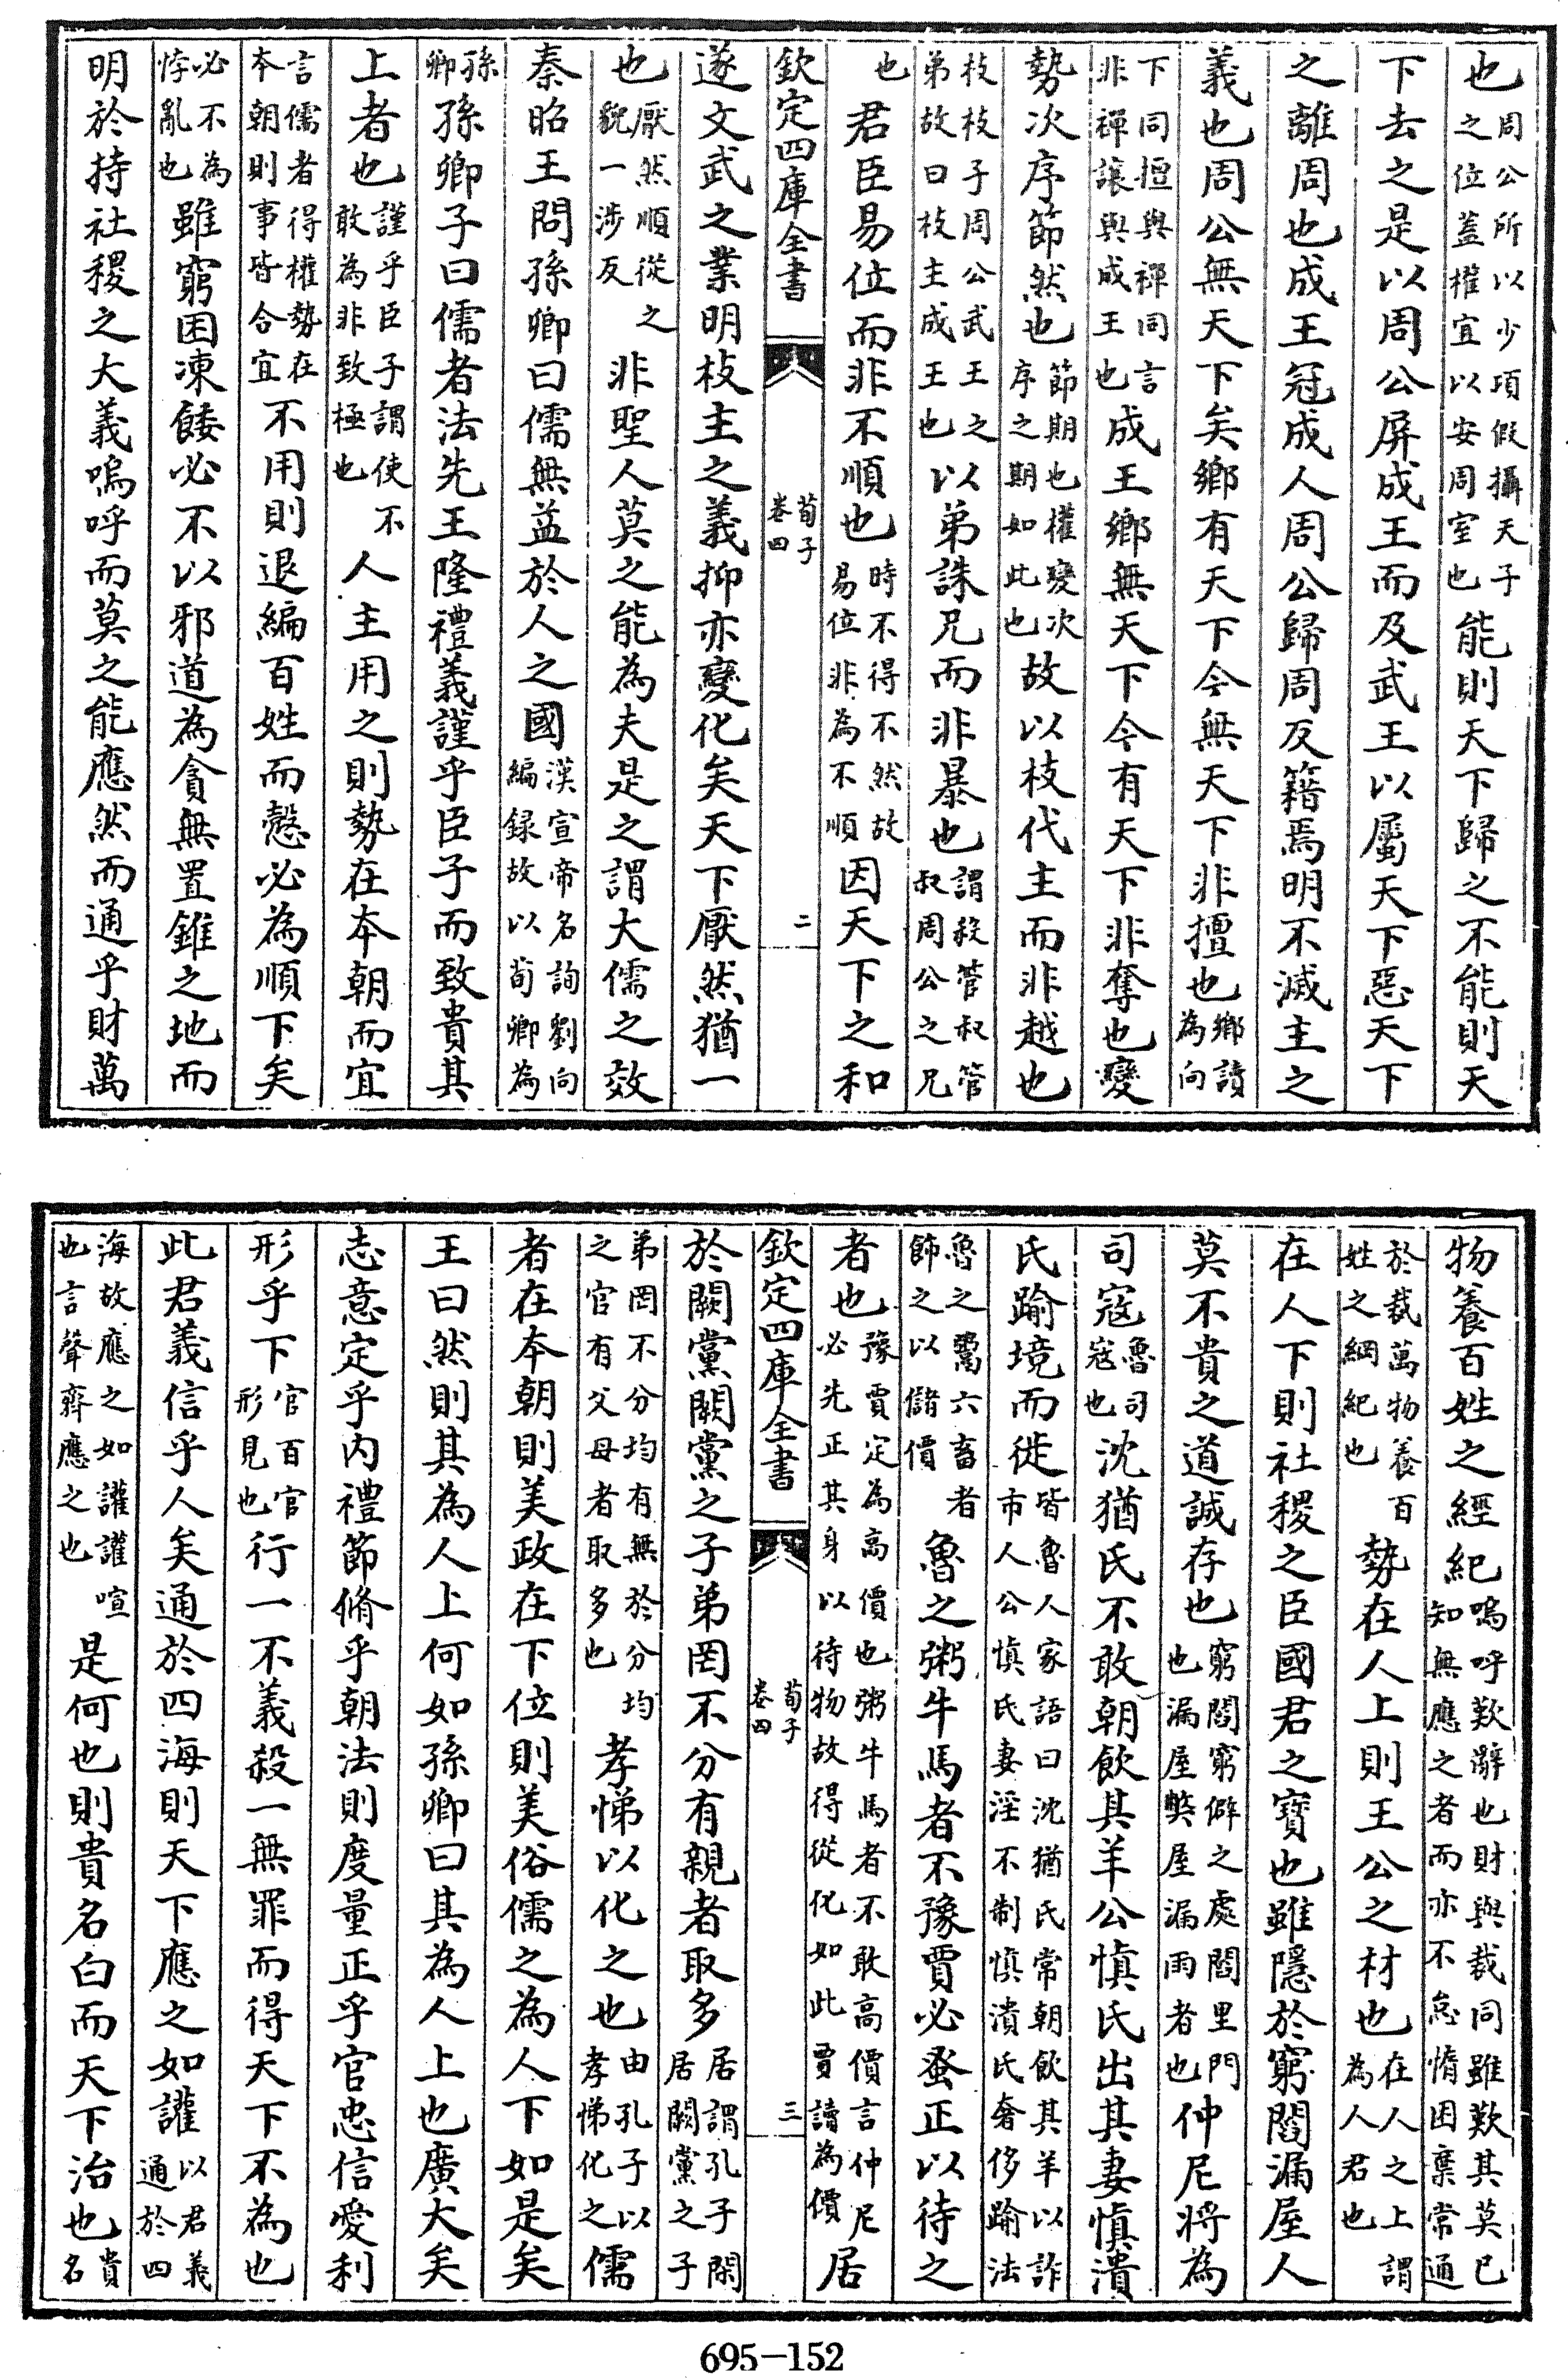 也周公所以少頃假攝天子之位蓋權宜以安周室也能則天下歸之不能則天
下去之是以周公屏成王而及武王以屬天下惡天下
之離周也成王冠成人周公歸周反籍焉明不滅主之
義也周公無天下矣鄉有天下今無天下非擅也鄉讀為向
下同擅與禪同言非禪讓與成王也成王鄉無天下今有天下非奪也變
勢次序節然也節期也權變次序之期如此也故以枝代主而非越也
枝枝子周公武王之弟故曰枝主成王也以弟誅兄而非暴也謂殺管叔管叔周公之兄
也君臣易位而非不順也時不得不然故易位非為不順因天下之和
欽定四庫全書 荀子 卷四 二
遂文武之業明枝主之義抑亦變化矣天下厭然猶一
也厭然順從之貌一涉反非聖人莫之能為夫是之謂大儒之效
秦昭王問孫卿曰儒無益於人之國漢宣帝名詢劉向編録故以荀卿為
孫卿孫卿子曰儒者法先王隆禮義謹乎臣子而致貴其
上者也謹乎臣子謂使不敢為非致極也人主用之則勢在本朝而宜
言儒者得權勢在本朝則事皆合宜不用則退編百姓而慤必為順下矣
必不為悖亂也雖窮困凍餧必不以邪道為貪無置錐之地而
明於持社稷之大義嗚呼而莫之能應然而通乎財萬
物養百姓之經紀嗚呼歎辭也財與裁同雖歎其莫已知無應之者而亦不怠惰困棄常通
於裁萬物養百姓之綱紀也勢在人上則王公之材也在人之上謂為人君也
在人下則社稷之臣國君之寶也雖隱於窮閻漏屋人
莫不貴之道誠存也窮閻窮僻之處閻里門也漏屋弊屋漏雨者也仲尼將為
司寇魯司寇也沈猶氏不敢朝飲其羊公慎氏出其妻慎潰
氏踰境而徙皆魯人家語曰沈猶氏常朝飲其羊以詐市人公慎氏妻淫不制慎潰氏奢侈踰法
魯之鬻六畜者飾之以儲價魯之粥牛馬者不豫賈必蚤正以待之
者也豫賈定為高價也粥牛馬者不敢高價言仲尼必先正其身以待物故得從化如此賈讀為價居
欽定四庫全書 荀子 卷四 三
於闕黨闕黨之子弟罔不分有親者取多居謂孔子閑居闕黨之子
弟罔不分均有無於分均之官有父母者取多也孝悌以化之也由孔子以孝悌化之儒
者在本朝則美政在下位則美俗儒之為人下如是矣
王曰然則其為人上何如孫卿曰其為人上也廣大矣
志意定乎内禮節脩乎朝法則度量正乎官忠信愛利
形乎下官百官形見也行一不義殺一無罪而得天下不為也
此君義信乎人矣通於四海則天下應之如讙以君義通於四
海故應之如讙讙喧也言聲齊應之也是何也則貴名白而天下治也貴名
695-152